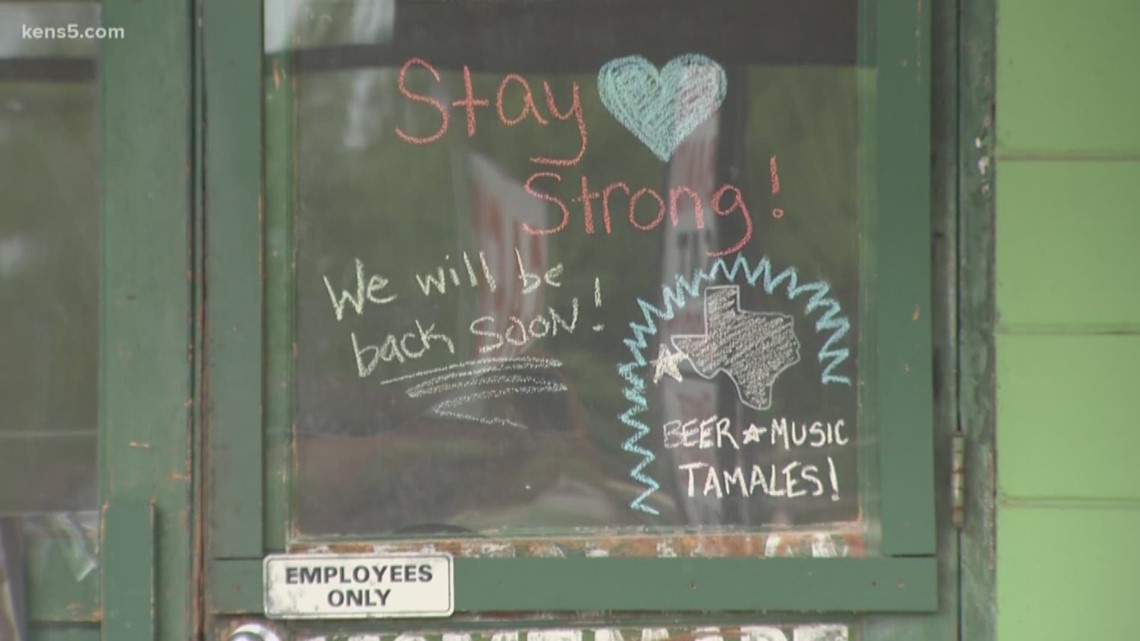 kens5.com
Stay
Strong!
We will be
back Soon!
BEER★MUSIC
TAMALES!
EMPLOYEES
ONLY